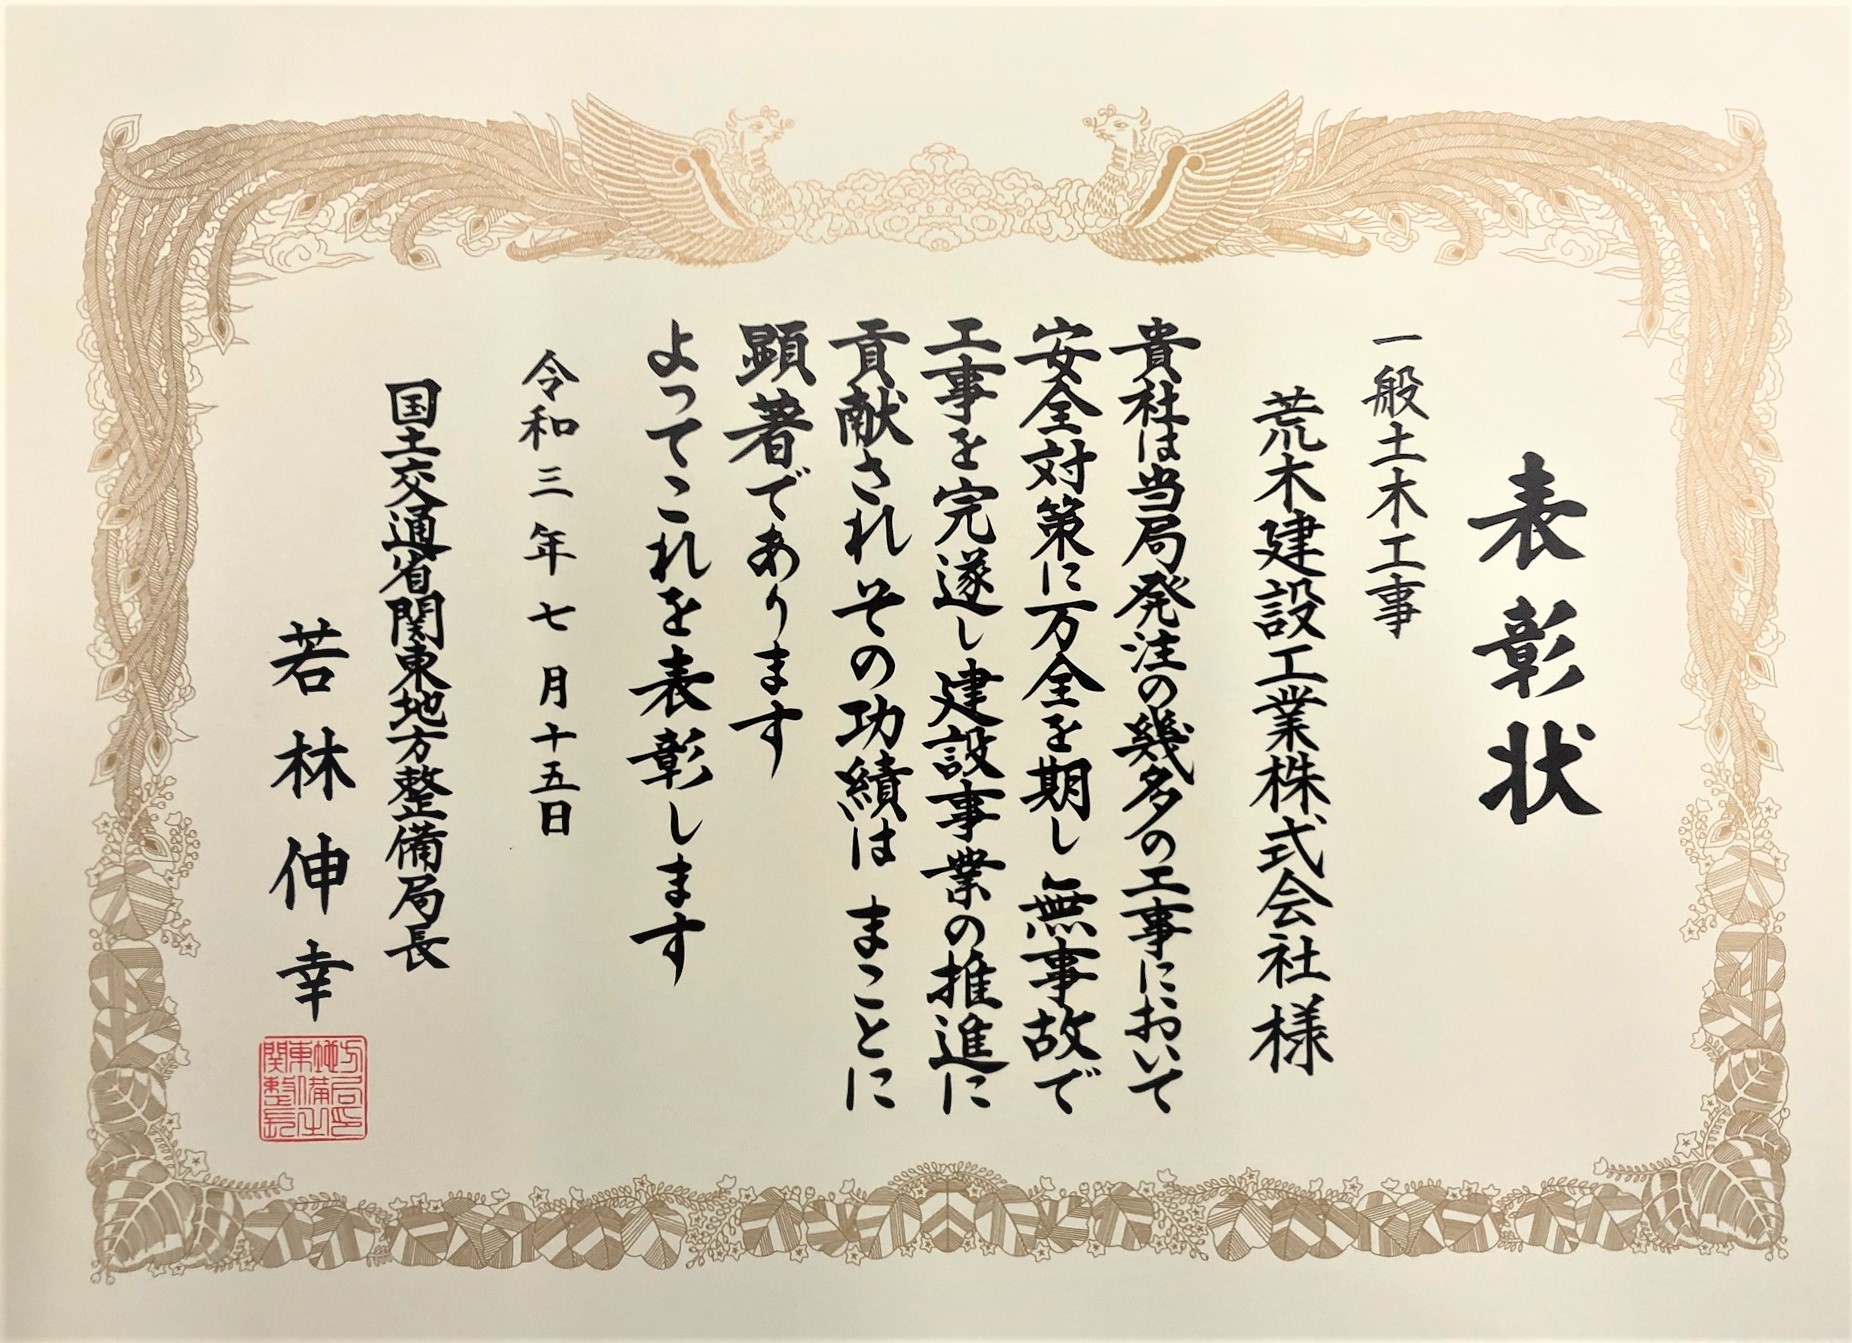 表彰状
一般土木工事
荒木建設工業株式会社 様
貴社は当局発注の幾多の工事において
安全対策に万全を期し 無事故で
工事を完遂し 建設事業の推進に
貢献され その功績は まことに
顕著であります
よってこれを表彰します
令和三年七月十五日
国土交通省関東地方整備局長
若林伸幸
関東地方整備局長之印